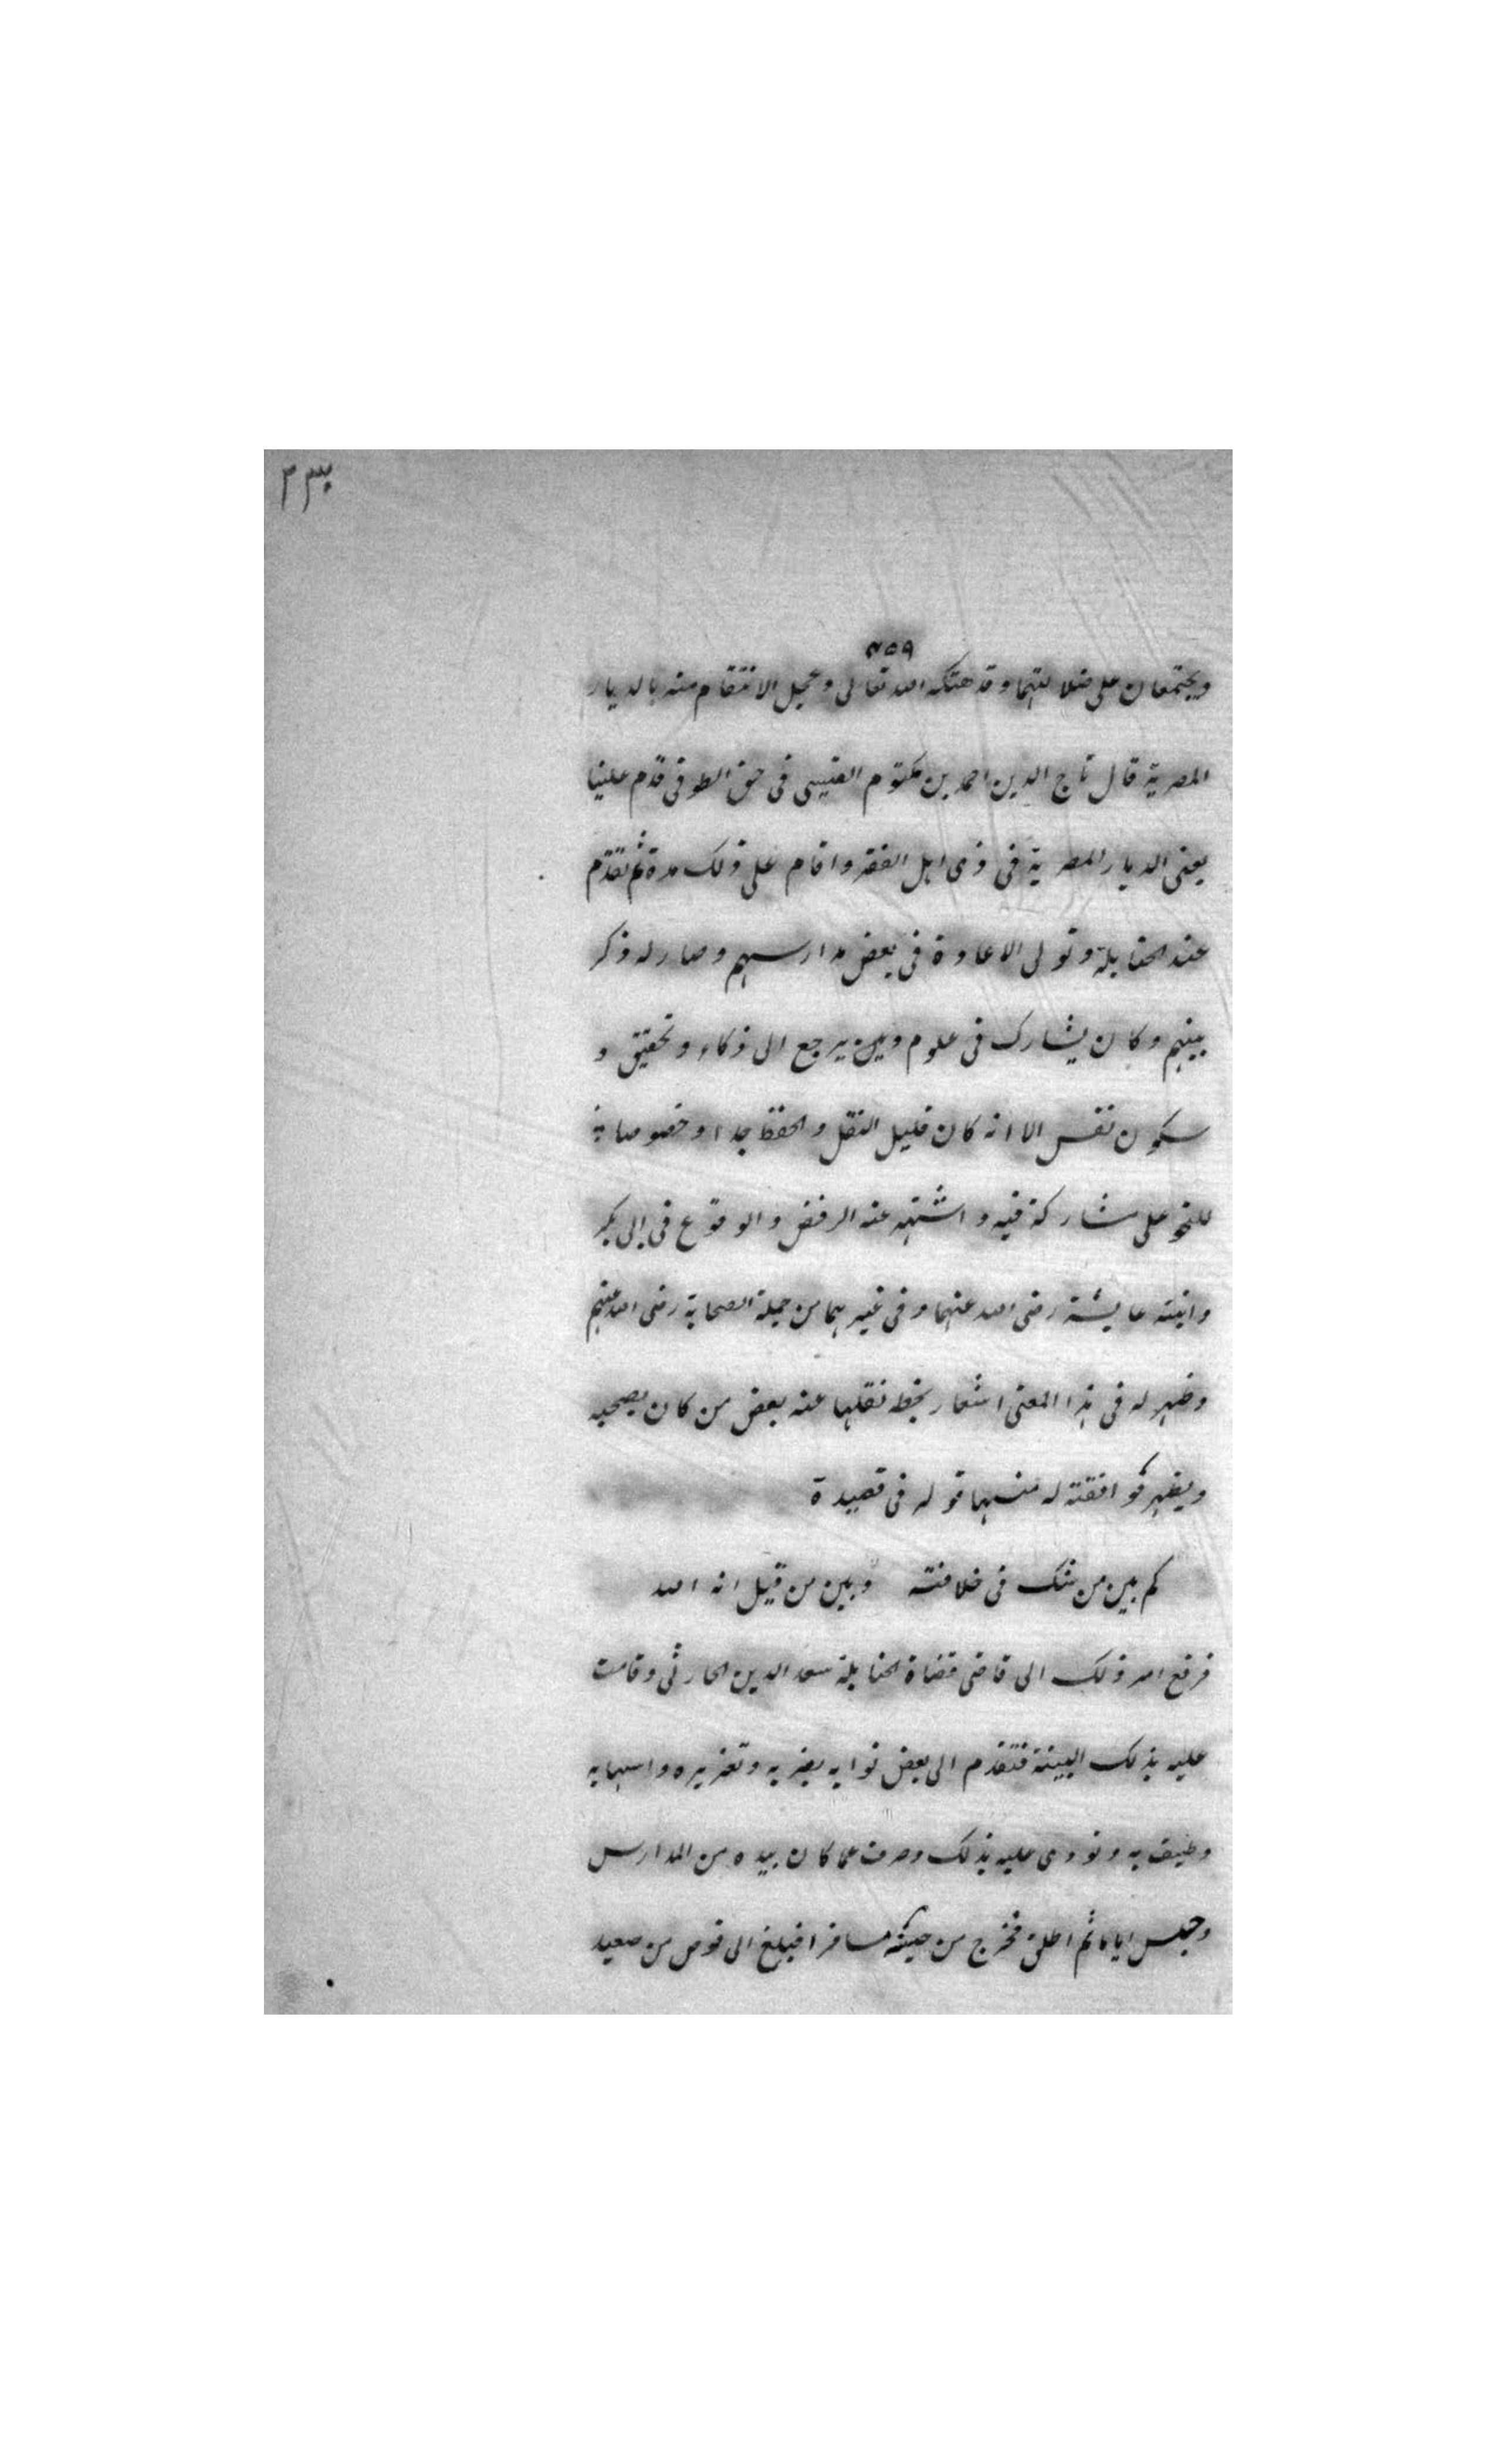 ٤٥٩
ويجتمعان على ضلالتهما وقد هتكه الله تعالى وعجل الانتقام منه بالديار
المصرية قال تاج الدين احمد بن مكتوم القيسى فى حق الطوفى قدم علينا
يعنى الديار المصرية فى زى اهل الفقر واقام على ذلك مدة ثم تقدم
عند الحنابلة وتولى الاعادة فى بعض مدارسهم وصار له ذكر
بينهم وكان يشارك فى علوم ويرجع الى ذكاء وتحقيق و
سكون نفس الا انه كان قليل النقل والحفظ جدا وخصوصا
للنحو على مشاركة فيه واشتهر عنه الرفض والوقوع فى ابى بكر
وابنته عايشة رضى الله عنهما وفى غيرهما من جملة الصحابة رضى الله عنهم
وظهر له فى هذا المعنى اشعار بخطه نقلها عنه بعض من كان يصحبه
ويظهر موافقته له منها قوله فى قصيدة
كم بين من شك فى خلافته وبين من قيل انه الله
فرفع امر ذلك الى قاضى قضاة الحنابلة سعد الدين الحارثى وقامت
عليه بذلك البينة فتقدم الى بعض نوابه بضربه وتعزيره واشهاره
وطيف به ونودى عليه بذلك وصرف عما كان بيده من المدارس
وحبس اياما ثم اطلق فخرج من حينه مسافرا فبلغ الى قوص من صعيد